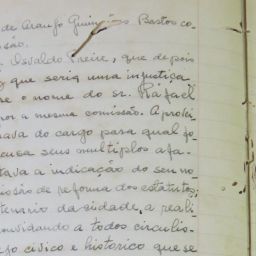 de Araujo Guimarães Bastos co-
são.
Osvaldo Freire, que depois
que seria uma injustiça
e o nome do sr. Rafael
por a mesma comissão. A proxi-
nava do cargo para qual fo-
cusa seus multiplos afa-
tava a indicação do seu no-
issão de reforma dos estatutos;
tenario da cidade, a reali-
onvidando a todos circulis-
civico e historico que se